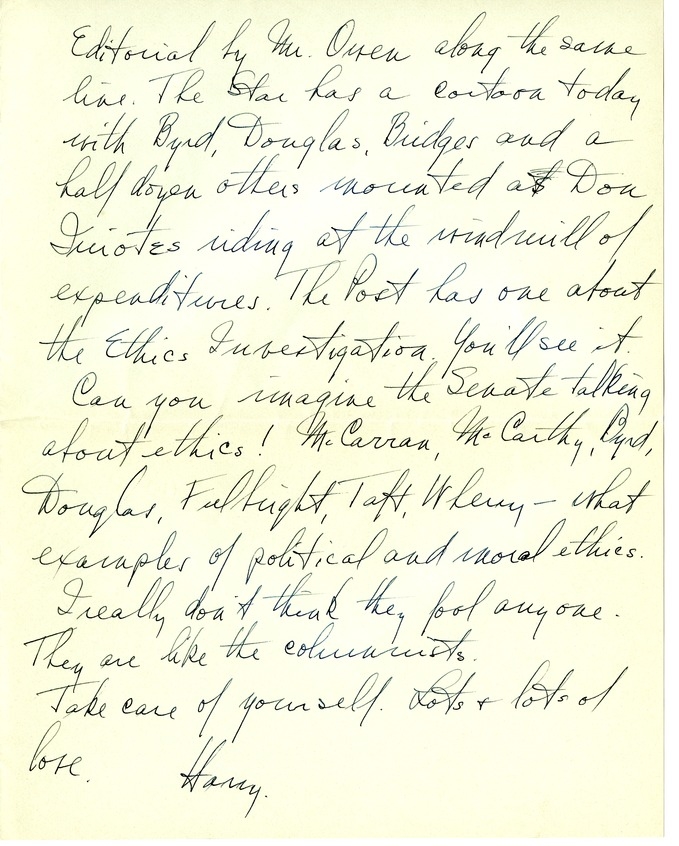 Editorial by Mr. Owen along the same
line. The Star has a cartoon today
with Byrd, Douglas, Bridges and a
half dozen others mounted as Don
Quiotes riding at the windmill of
expenditures. The Post has one about
the Ethics Investigation. You'll see it.
Can you imagine the Senate talking
about ethics! McCarran, McCarthy, Byrd,
Douglas, Fulbright, Taft, Wherry – what
examples of political and moral ethics.
I really don't think they fool anyone.
They are like the columnists.
Take care of yourself. Lots & lots of
love. Harry.